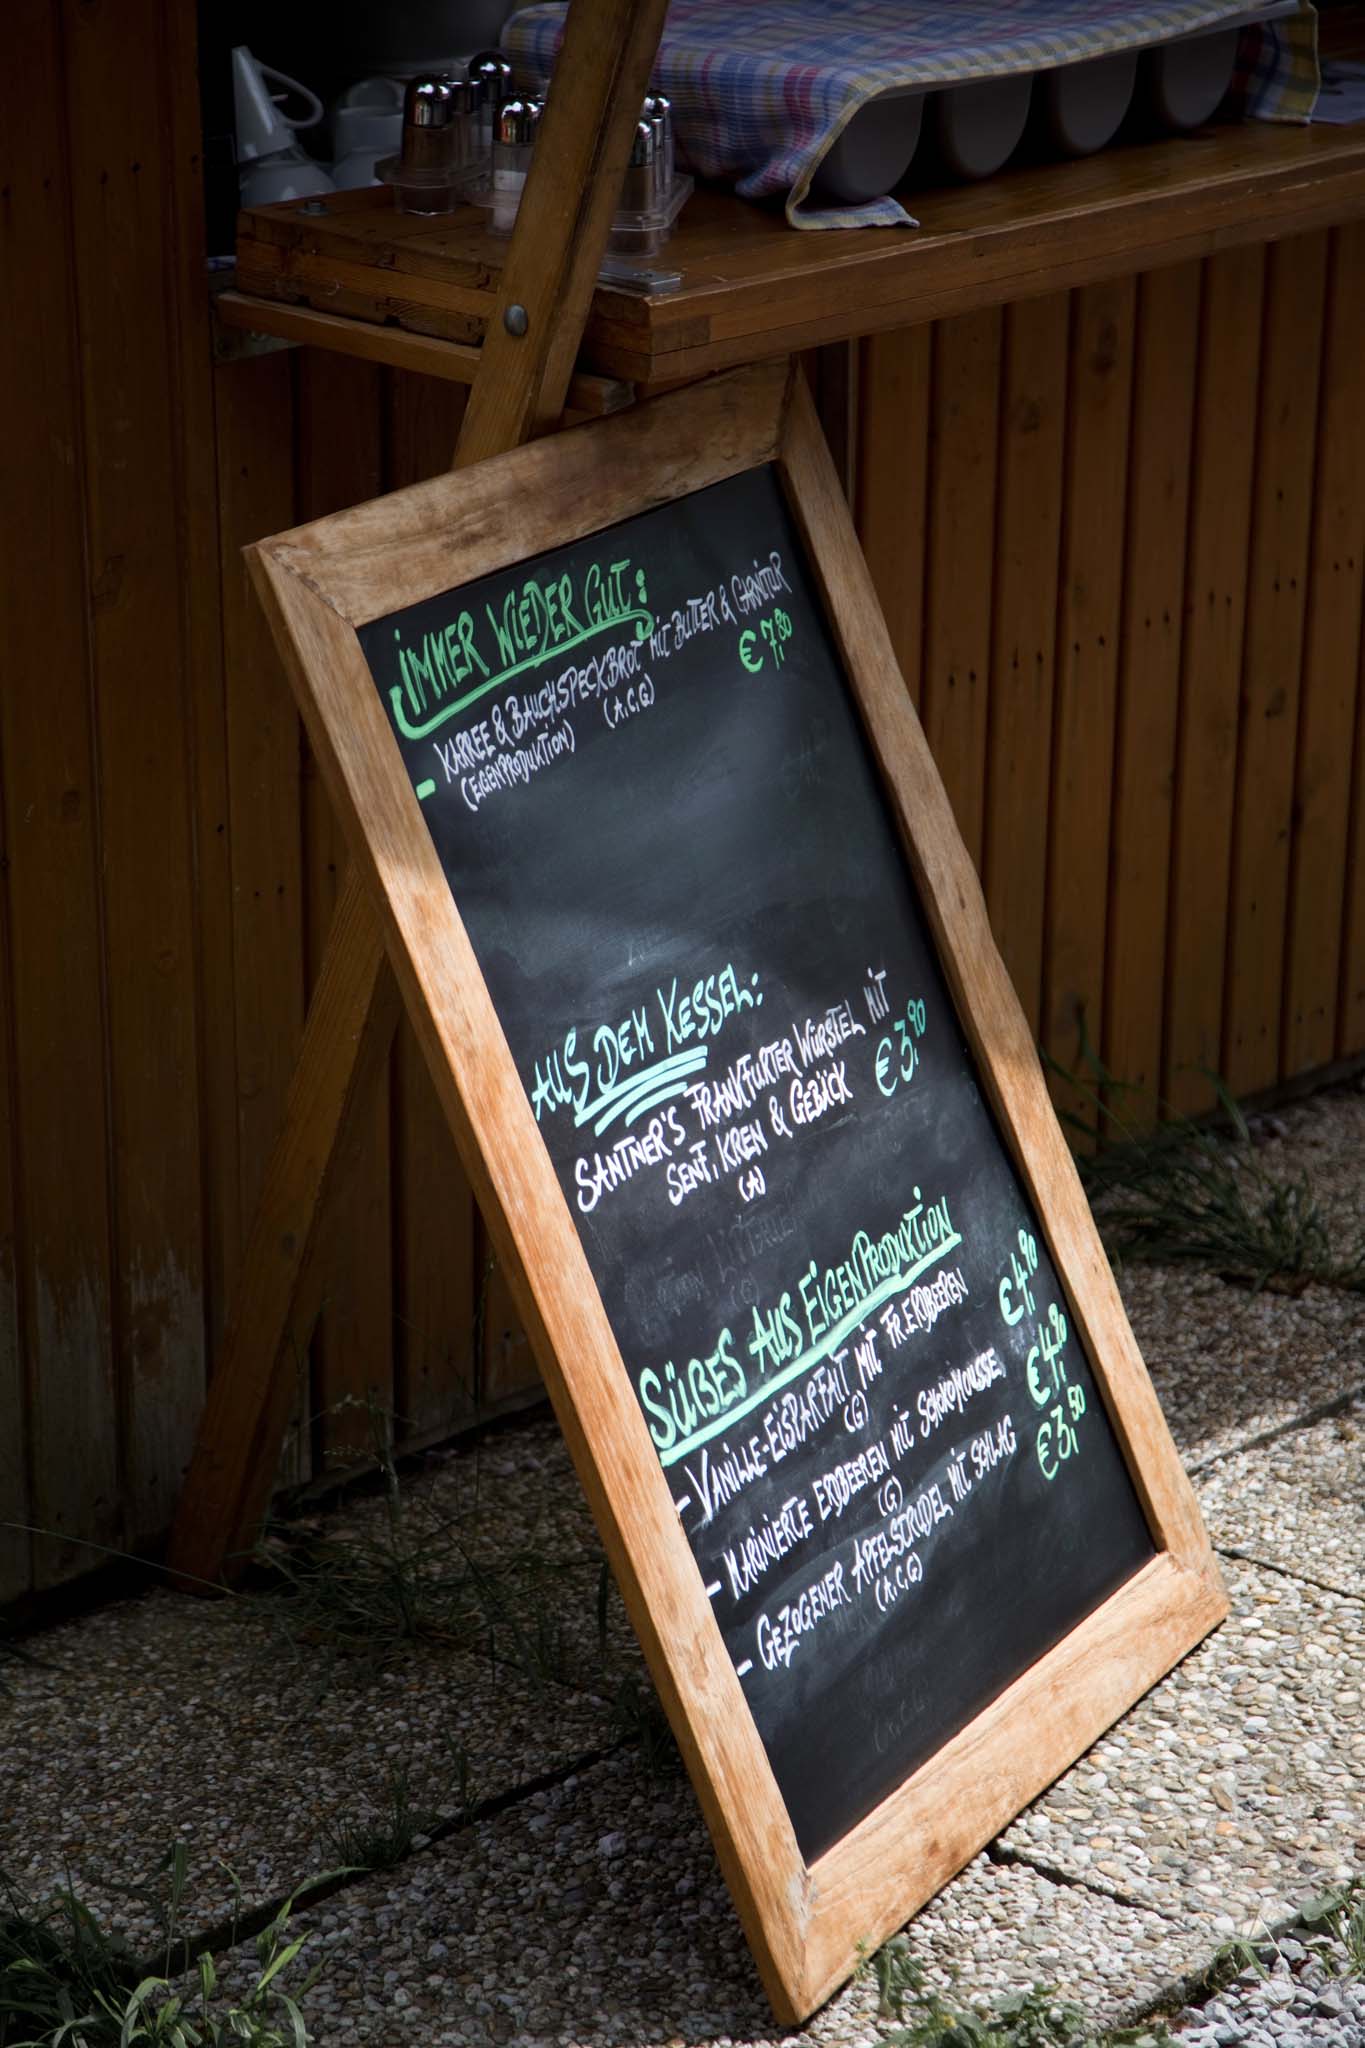 IMMER WIEDER GUT:
- KARREE & BAUCHSPECKBROT MIT BUTTER & GARNITUR
(EIGENPRODUKTION) (A,C,G) € 7,80
AUS DEM KESSEL:
SANTNER'S FRANKFURTER WÜRSTEL MIT
SENF, KREN & GEBÄCK € 3,90
(A)
SÜßES AUS EIGENPRODUKTION
- VANILLE-EISPARFAIT MIT FR. ERDBEEREN € 4,90
(G)
- MARINIERTE ERDBEEREN MIT SCHOKOMOUSSE € 4,90
(G)
- GEZOGENER APFELSTRUDEL MIT SCHLAG € 3,50
(A,C,G)